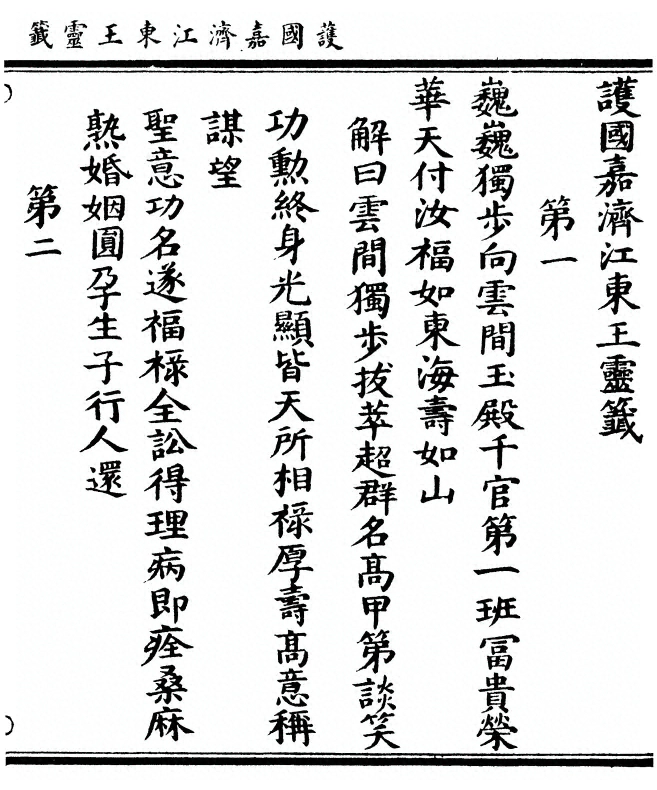 護國嘉濟江東王靈籤
護國嘉濟江東王靈籤
第一
巍巍獨步向雲間玉殿千官第一班冨貴榮
華天付汝福如東海壽如山
解曰雲間獨步拔萃超群名髙甲第談笑
功勲終身光顯皆天所相祿厚壽髙意稱
謀望
聖意功名遂福祿全訟得理病即痊桑麻
熟婚姻圓孕生子行人還
第二